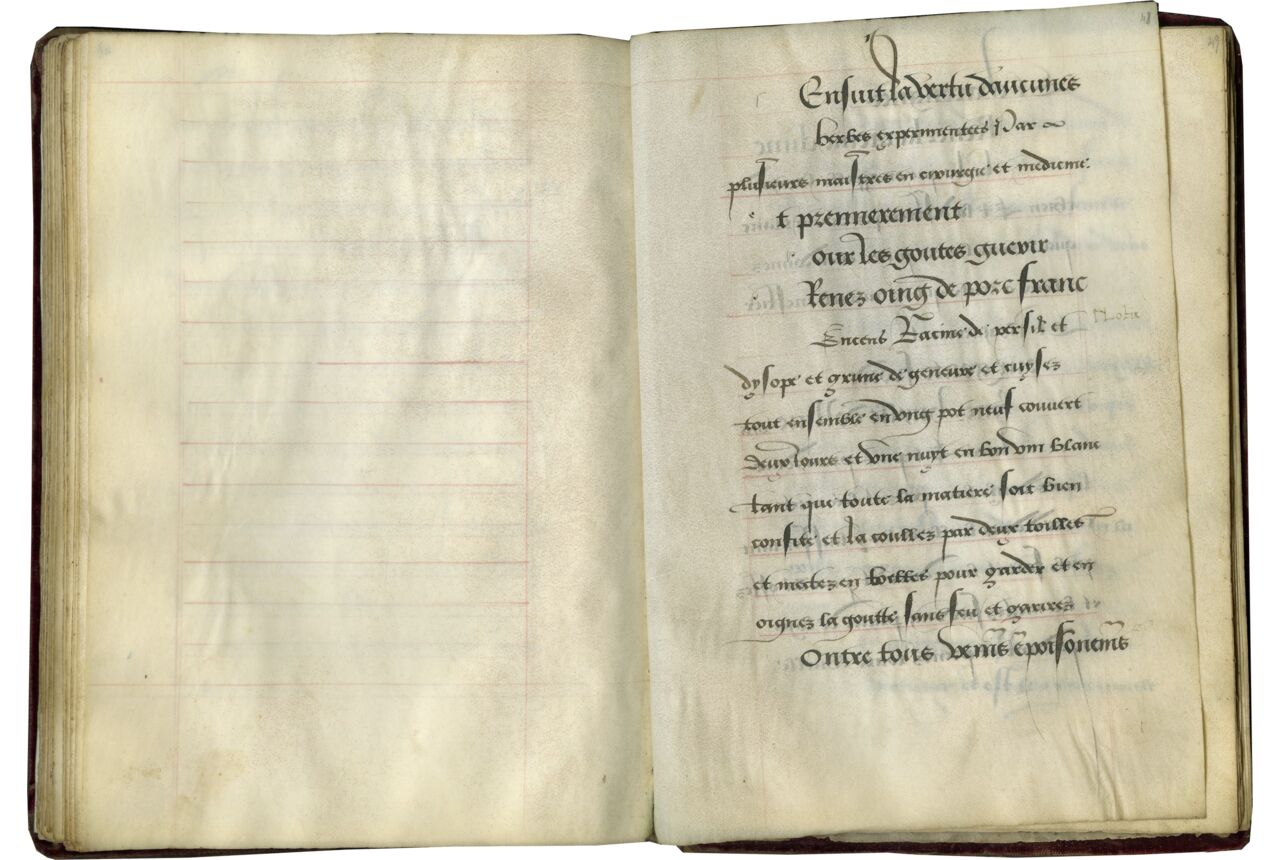 48
49
Ensuit la vertu daucunes
herbes experimentees Par
plusieurs maistres en cirurgie et medicine
t premierement
our les goutes guerir
Renez oing de porc franc
Encens Racine de persil et Nota
dysope et grune de genevre et cuysez
tout ensemble en ung pot neuf couvert
deux jours et une nuyt en bon vin blanc
tant que toute la matiere soit bien
confite et la coullez par deux toilles
et mectez en boettes pour garder et en
oignez la goutte sans feu et garirez
Ontre tous venins